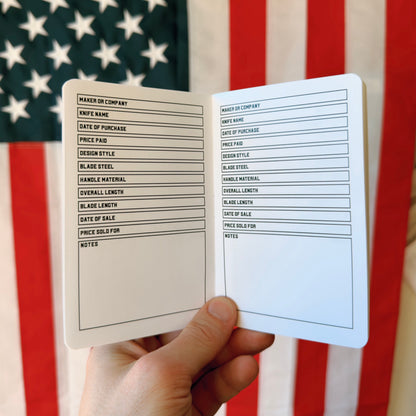 MAKER OR COMPANY
KNIFE NAME
DATE OF PURCHASE
PRICE PAID
DESIGN STYLE
BLADE STEEL
HANDLE MATERIAL
OVERALL LENGTH
BLADE LENGTH
DATE OF SALE
PRICE SOLD FOR
NOTES
MAKER OR COMPANY
KNIFE NAME
DATE OF PURCHASE
PRICE PAID
DESIGN STYLE
BLADE STEEL
HANDLE MATERIAL
OVERALL LENGTH
BLADE LENGTH
DATE OF SALE
PRICE SOLD FOR
NOTES